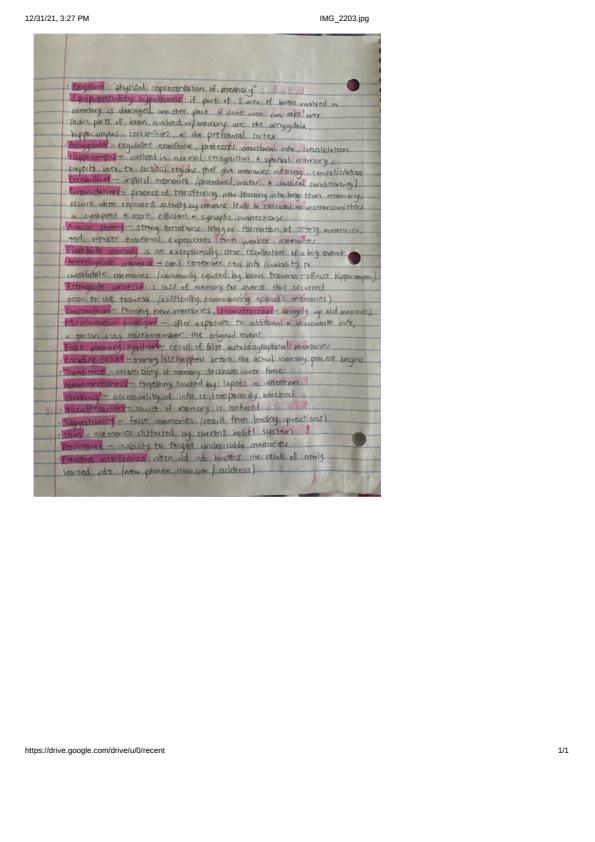 12/31/21, 3:27 PM
IMG_2203.jpg
Engram "physical representation of memory"
Equipotentiality hypothesis: if part of 1 area of brain involved in
memory is damaged another part of same area can take over
main parts of brain involved w/ memory are the amygdala,
hippocampus, cerebellum, & the prefrontal cortex
Amygdala - regulates emotions, processes emotional info, consolidation
Hippocampus - involved in normal recognition & spatial memory,
projects info to cortical regions that give memories meaning, consolidation
Cerebellum - implicit memories (procedural, motor, & classical conditioning)
Consolidation - process of transferring new learning into long term memory,
occurs when repeated activity by neurons leads to increased neurotransmitters
in synapses & more efficient & synaptic connections
Arousal theory - strong emotions trigger formation of strong memories,
and weaker emotional experiences form weaker memories
Flashbulb memory is an exceptionally clear recollection of a big event
Anterograde amnesia - can't remember new info/inability to
consolidate memories (commonly caused by brain trauma - affects hippocampus)
Retrograde amnesia is loss of memory for events that occurred
prior to the trauma (difficulty remembering episodic memories)
Construction - forming new memories, reconstruction - bringing up old memories
Misinformation paradigm - after exposure to additional & inaccurate info,
a person may misremember the original event
False memory syndrome - recall of false autobiographical memories
Encoding failure - memory loss happens before the actual memory process begins
Transience - accessibility of memory decreases over time
Absentmindedness - forgetting caused by lapses in attention
Blocking - accessibility of info is temporarily blocked
Misattribution - source of memory is confused
Suggestibility - false memories (result from leading questions)
Bias - memories distorted by current belief system
Persistence - inability to forget undesirable memories
Proactive interference when old info hinders the recall of newly
learned info (new phone number / address)
https://drive.google.com/drive/u/0/recent
1/1